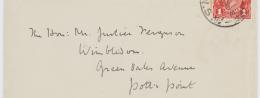 The Hon: Mr. Justice Ferguson
Wimbledon
Green Oaks Avenue
Potts Point